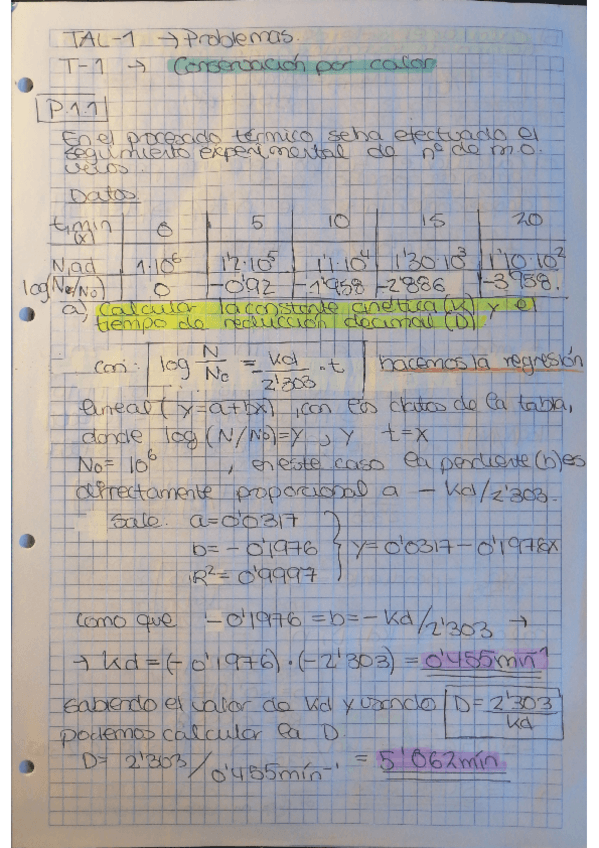 TAL-1 → Problemas.
T-1 → Conservación por calor
P.1.1
En el procesado térmico se ha efectuado el
seguimiento experimental de nº de m.o.
Datos
t,min (x) 0 5 10 15 20
N,ad 1·10⁶ 1'2·10⁵ 1'1·10⁴ 1'30·10³ 1'10·10²
log(N₀/N₀) 0 -0'92 -1'958 -2'886 -3'958.
a) calcular la constante cinética (K) y el
tiempo de reducción decimal (D).
con: log N/N₀ = kd/2'303 · t hacemos la regresión
lineal (y=a+bx), con los datos de la tabla,
donde log (N/N₀)=Y, y t=x
N₀= 10⁶, en este caso la pendiente (b) es
directamente proporcional a - Kd/2'303.
Sale. a=0'0317
b= -0'1976 } y=0'0317-0'1976x
R²= 0'9997
como que -0'1976 = b = -Kd/2'303 →
→ Kd = (-0'1976)·(-2'303) = 0'455 min⁻¹
Sabiendo el valor de Kd y usando D = 2'303/Kd
podemos calcular la D.
D= 2'303/0'455min⁻¹ = 5'062min